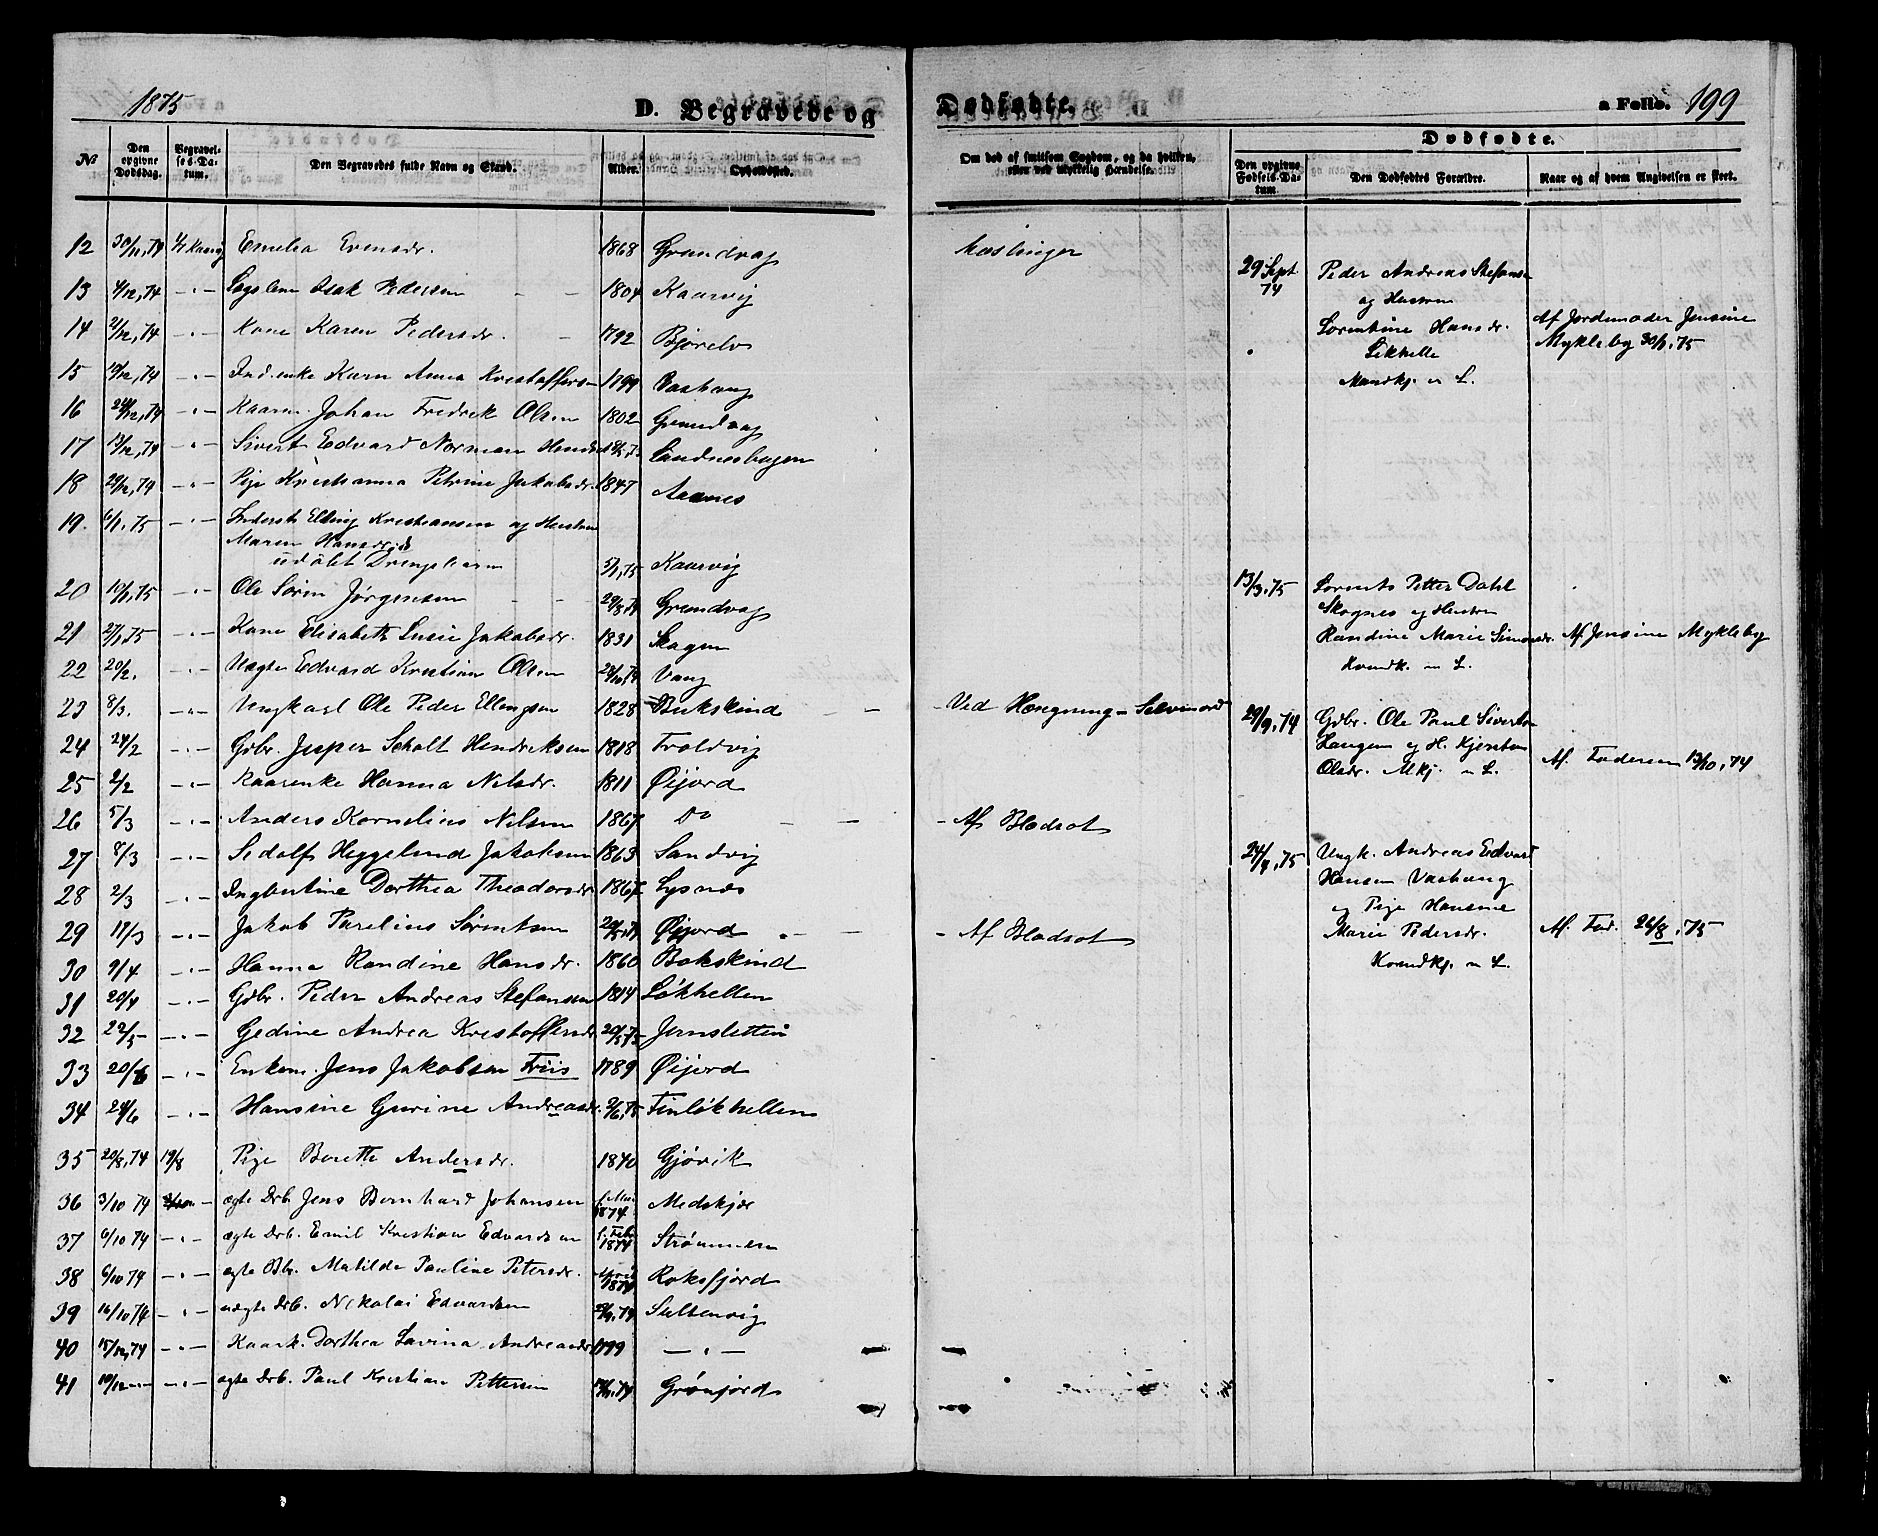 1875
D. Begravede og Dødfødte.
a Folio. 199
№
Den opgivne Dødsdag.
Begravelses-Datum.
Den Begravedes fulde Navn og Stand.
Alder.
Opholdssted.
Om død af smitsom Sygdom, og da hvilken, eller ved ulykkelig Hændelse.
Dødfødte.
Den opgivne Fødsels-Datum.
Den Dødfødtes Forældre.
Naar og af hvem Angivelsen er skeet.
12 30/11,74 Emelia Evensdr. 1868 Grundvag Mæslinger
13 4/12,74 -"- Isak Pedersen 1804 Kaarvig
14 21/12,74 -"- Kone Karen Pedersdr. 1792 Bjørelv
15 /12,74 -"- Karn Anna Kristoffers 1799 Vashaug
16 24/12,74 -"- Johan Fredrik Olsen 1802 Grundvag
17 13/12,74 -"- Sivert Edvard Norman Sandnesbugen
18 29/12,74 -"- Pige Kristianna Petrine Jakobsdr. 1847 Aaenes
19. 6/1,75 -"- Inderst Elling Kristiansen og Hustru
Maren Hansdr.
udøbt Drengebarn 5/1,75 Kaarvig
20 10/1,75 -"- Ole Søren Jørgensen 29/8,74 Grundvag
21 27/1,75 -"- Kone Elisabeth Lusie Jakobsdr. 1831 Skogen
22 20/2. -"- Uægte Edvard Kristian Olsen 28/10,74 Vang
23 8/3. -"- Ungkarl Ole Peder Ellingsen 1828 Bukskind - Ved Hængning - Selvmord
24 24/2 -"- Gdbr. Jesper Scholt Hendriksen 1818 Troldvig
25 2/2 -"- Kaarenke Hanna Nilsdr. 1811 Øijord
26 5/3 -"- Anders Kornelius Nilsen 1867 Do - Af Blodsot
27 8/3 -"- Sedolf Heggelund Jakobsen 1863 Sandvig
28 2/3 -"- Ingbertine Dorthea Theodorsdr. 1867 Lysnæs
29 17/3 -"- Jakob Parelius Sørentsen Øijord - Af Blodsot
30 9/4 -"- Hanna Randine Hansdr. 1860 Bakskind
31 20/4 -"- Gdbr. Peder Andreas Stefansen 1814 Løkhellen
32 22/5 -"- Gedine Andrea Kristoffersdr. 20/5,75 Jernsletten
33 20/6 -"- Enkem. Jens Jakobsen Friis 1789 Øijord
34 24/6 -"- Hansine Gurine Andreasdr. 2/6,75 Finløkhellen
35 20/8,74 19/8 Pige Berethe Andersdr. 1840 Gjøvik
36 3/10 74 ægte Drb. Jens Bernhard Johansen 1874 Medskjær
37 6/10 74 -"- ægte Drb. Emil Kristian Edvardsen f. Febr. 1874 Strømmen
38 6/10 74 -"- ægte Pbr. Matilde Pauline Petersdr. 1874 Roksfjord
39 16/10 74 -"- uægte Drb. Nikolai Edvardsen Sultenvig
40 15/12,74 -"- Kaark. Dorthea Lavina Andreasdr. 1799 -"-
41 10/12 -"- -"- ægte Drb. Paul Kristian Pettersen Grønjord
29 Sept 74
Peder Andreas Stefansen
og Hustru
Lorentine Hansdr.
Løkhelle
Mandkj. u L.
Af Jordemoder Jensine
Mykleby 30/1,75
13/3,75
Lorents Petter Dahl
Skognes og Hustru
Randine Marie Simonsdr.
Kvindk. u L.
Af Jensine Mykleby
29/9,74
Gdbr. Ole Paul Sivertsen
Haugen og H. Kjersten
Olsdr. Mkj. u L.
Af Faderen 13/10,74
24/ ,75
Ungk. Andreas Edvard
Hansen Vashaug
og Pige Hansine
Marie Pedersdr.
Kvindkj. u L.
Af Fad. 26/8,75